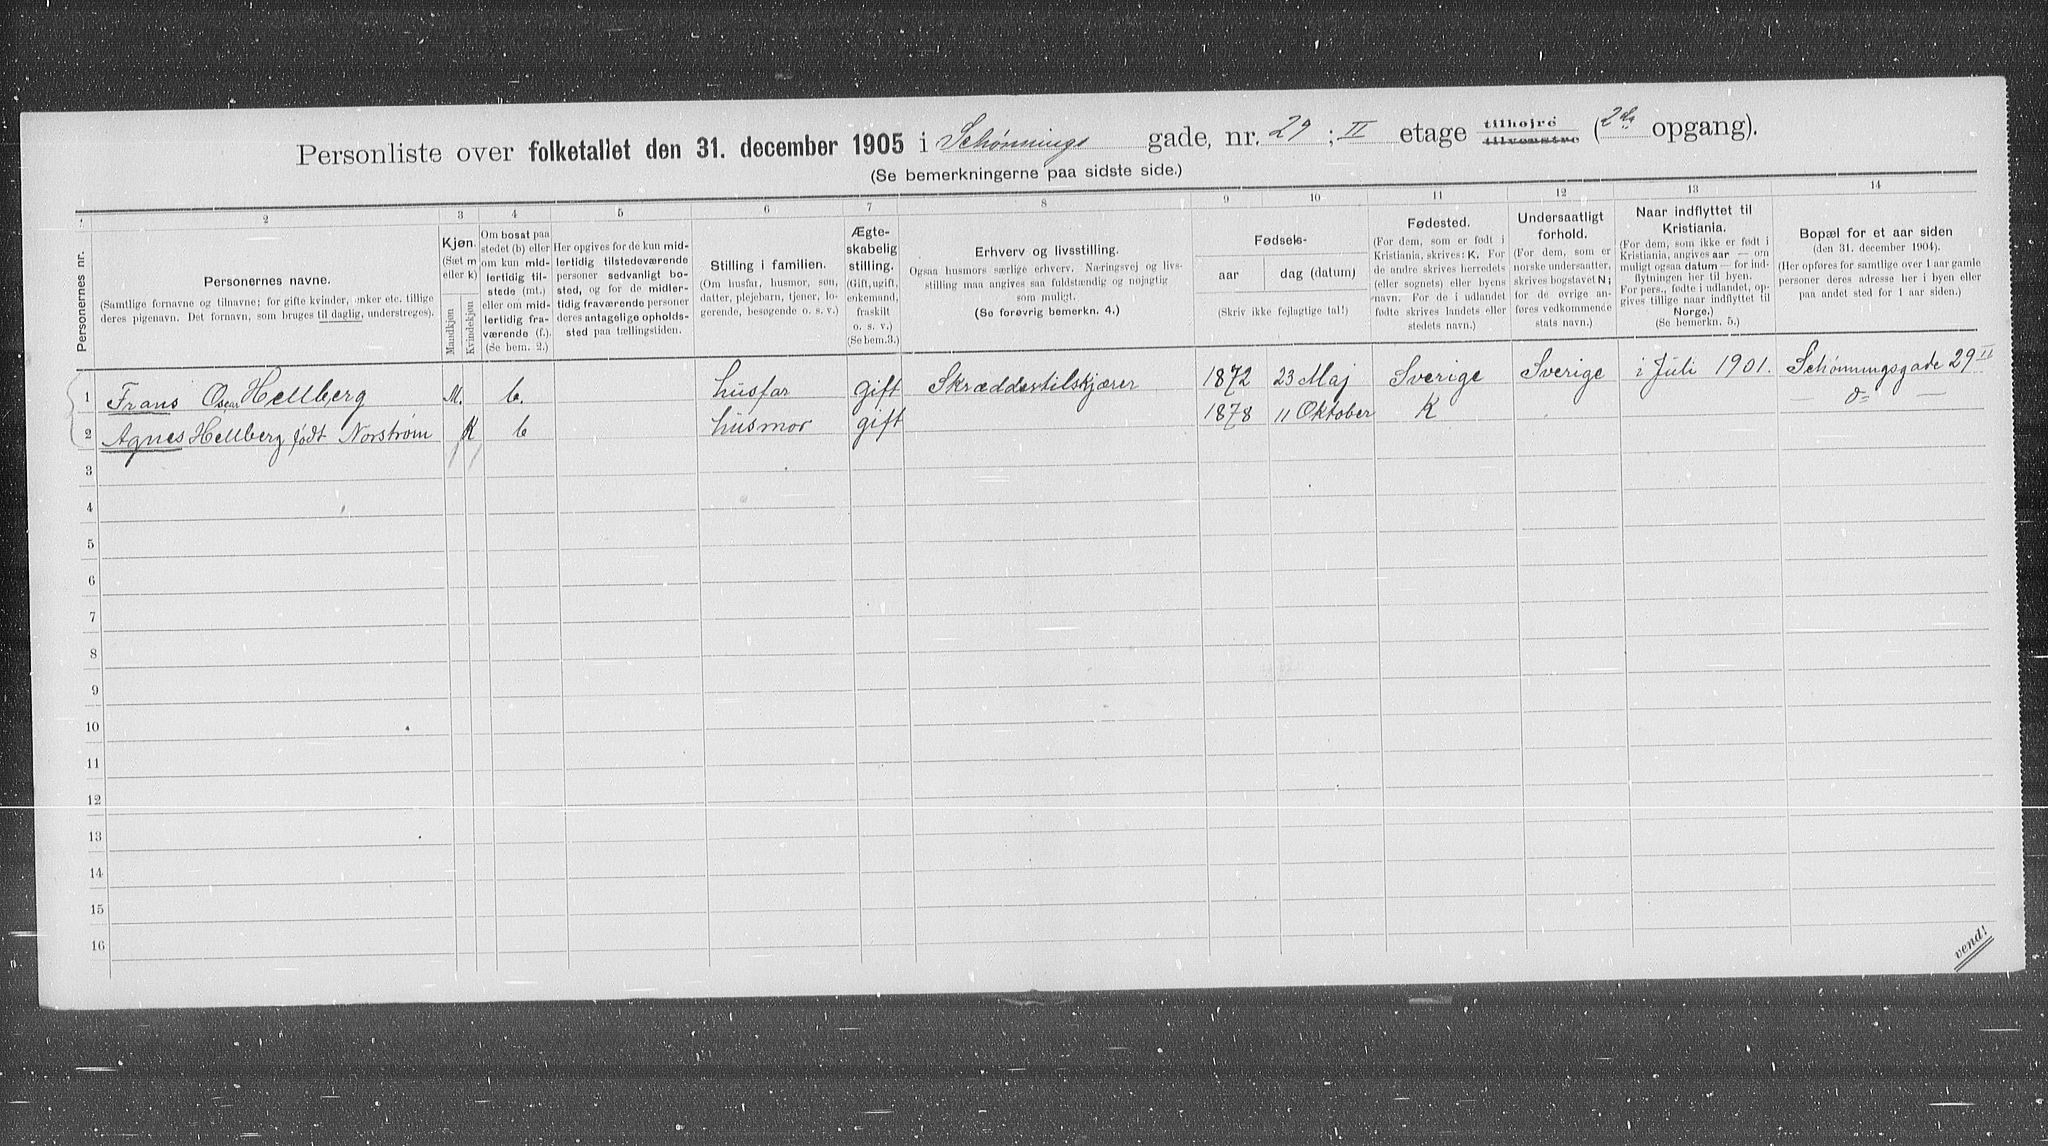 Personliste over folketallet den 31. december 1905 i Schønnings gade, nr. 29 ; II etage tilhøjre tilvenstre (2den opgang).
(Se bemerkningerne paa sidste side.)
1 2 3 4 5 6 7 8 9 10 11 12 13 14
Personernes nr.
Personernes navne.
(Samtlige fornavne og tilnavne; for gifte kvinder, enker etc. tillige
deres pigenavn. Det fornavn, som bruges til daglig, understreges).
Kjøn.
(Sæt m
eller k)
Mandkjøn
Kvindekjøn
Om bosat paa
stedet (b) eller
om kun mid-
lertidig til-
stede (mt.)
eller om mid-
lertidig fra-
værende (f.).
(Se bem. 2.)
Her opgives for de kun mid-
lertidig tilstedeværende
personer sedvanligt bo-
sted, og for de midler-
tidig fraværende personer
deres antagelige opholds-
sted paa tællingstiden.
Stilling i familien.
(Om husfar, husmor, søn,
datter, plejebarn, tjener, lo-
gerende, besøgende o. s. v.)
Ægte-
skabelig
stilling.
(Gift, ugift,
enkemand,
fraskilt
o. s. v.)
(Se bem.3.)
Erhverv og livsstilling.
Ogsaa husmors særlige erhverv. Næringsvej og livs-
stilling maa angives saa fuldstændig og nøjagtig
som muligt.
(Se forøvrig bemerkn. 4.)
Fødsels-
aar dag (datum)
(Skriv ikke fejlagtige tal!)
Fødested.
(For dem, som er født i
Kristiania, skrives: K. For
de andre skrives herredets
(eller sognets) eller byens
navn. For de i udlandet
fødte skrives landets eller
stedets navn.)
Undersaatligt
forhold.
(For dem, som er
norske undersaatter,
skrives bogstavet N;
for de øvrige an-
føres vedkommende
stats navn.)
Naar indflyttet til
Kristiania.
(For dem, som ikke er født i
Kristiania, angives aar — om
muligt ogsaa datum — for ind-
flytningen her til byen.
For pers., fødte i udlandet, op-
gives tillige naar indflyttet til
Norge.)
(Se bemerkn. 5.)
Bopæl for et aar siden
(den 31. december 1904).
(Her opføres for samtlige over 1 aar gamle
personer deres adresse her i byen eller
paa andet sted for 1 aar siden.)
1 Frans Oscar Hellberg M. b. husfar gift Skræddertilskjærer 1872 23 Maj Sverige Sverige i Juli 1901. Schønningsgade 29 II
2 Agnes Hellberg født Norstrøm K b husmor gift 1878 11 Oktober K — d= —
3
4
5
6
7
8
9
10
11
12
13
14
15
16
vend!